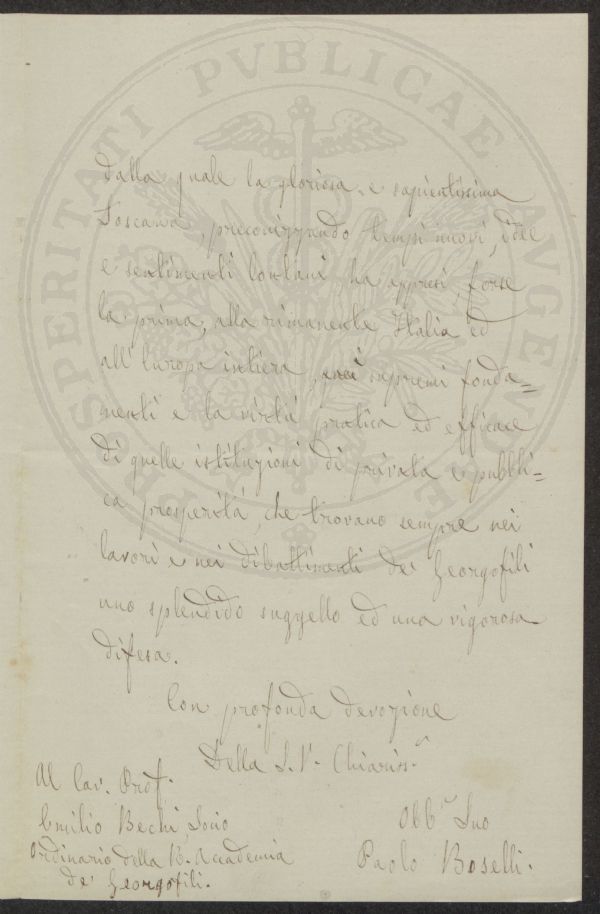 dalla quale la gloriosa e sapientissima
Toscana, preconizzando tempi nuovi, idee
e sentimenti lontani ha appresi, forse
la prima, alla rimanente Italia ed
all'Europa intiera, i supremi fonda=
menti e la virtù pratica ed efficace
di quelle istituzioni di privata e pubbli=
ca prosperità, che trovano sempre nei
lavori e nei dibattimenti de' Georgofili
uno splendido suggello ed una vigorosa
difesa.
Con profonda devozione
Della S.V. Chiariss.ᵃ
Obb.ᵐᵒ Suo
Paolo Boselli.
Al Cav. Prof.
Emilio Bechi, Socio
Ordinario della R. Accademia
de' Georgofili.
PROSPERITATI PVBLICAE AVGENDAE